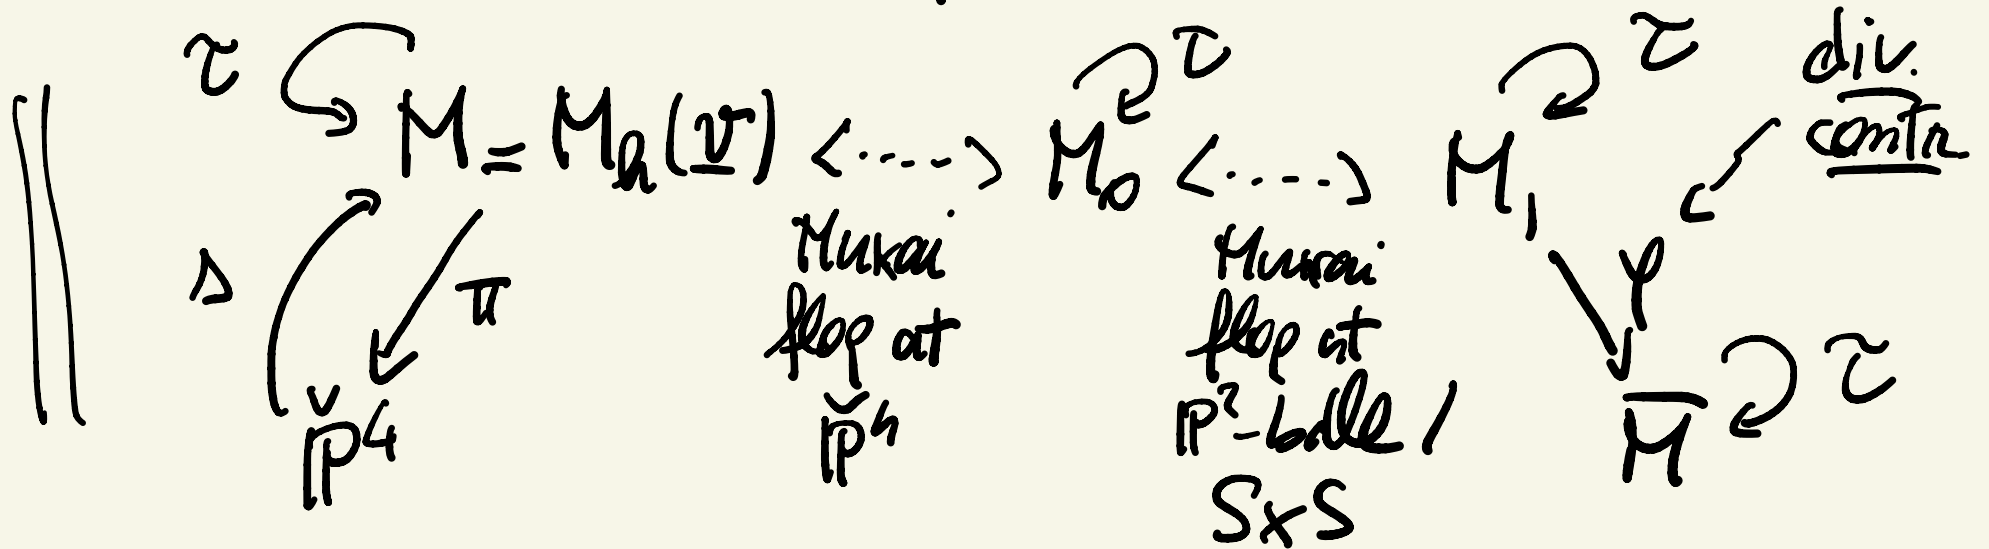 τ M = M_h(v) <····> M_0 τ <····> M_1 τ div. contr
s π Mukai flop at P̌^4 Mukai flop at P^2-bdle / S×S φ
P̌^4 M̄ τ